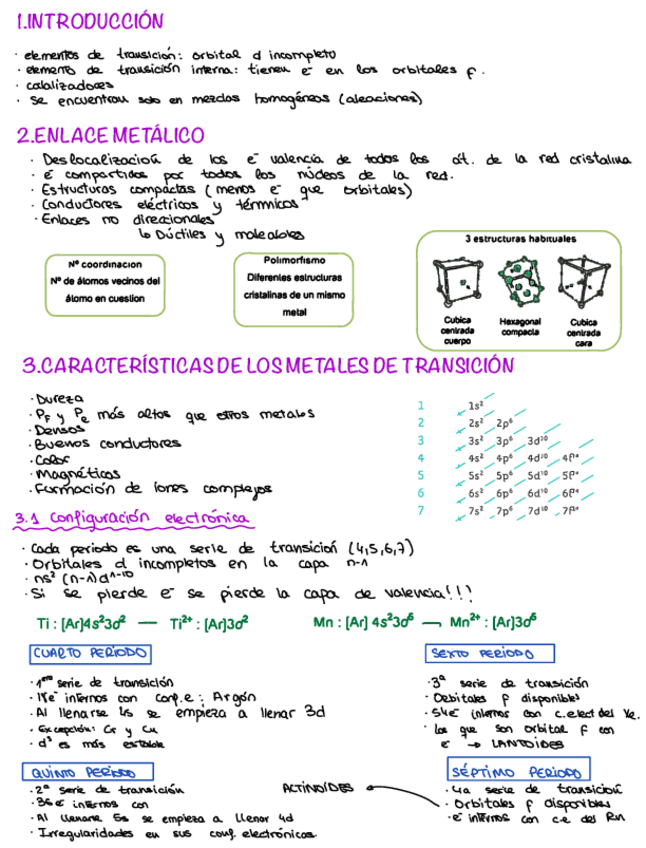 1.INTRODUCCIÓN
· elementos de transición: orbital d incompleto
· elemento de transición interna: tienen e⁻ en los orbitales f.
· catalizadores
· se encuentran solo en mezclas homogéneas (aleaciones)
2.ENLACE METÁLICO
· Deslocalización de los e⁻ valencia de todos los át. de la red cristalina
· e⁻ compartidos por todos los núcleos de la red.
· Estructuras compactas (menos e⁻ que orbitales)
· Conductores eléctricos y térmicos
· Enlaces no direccionales
↳ Dúctiles y maleables
Nº coordinacion
Nº de átomos vecinos del
átomo en cuestion
Polimorfismo
Diferentes estructuras
cristalinas de un mismo
metal
3 estructuras habituales
Cubica centrada cuerpo
Hexagonal compacta
Cubica centrada cara
3.CARACTERÍSTICAS DE LOS METALES DE TRANSICIÓN
· Dureza
· PF y Pe más altos que otros metales
· Densos
· Buenos conductores
· Color
· Magnéticos
· Formación de iones complejos
1 1s²
2 2s² 2p⁶
3 3s² 3p⁶ 3d¹⁰
4 4s² 4p⁶ 4d¹⁰ 4f¹⁴
5 5s² 5p⁶ 5d¹⁰ 5f¹⁴
6 6s² 6p⁶ 6d¹⁰ 6f¹⁴
7 7s² 7p⁶ 7d¹⁰ 7f¹⁴
3.1 Configuración electrónica
· Cada periodo es una serie de transición (4,5,6,7)
· Orbitales d incompletos en la capa n-1
· ns² (n-1)d¹⁻¹⁰
· Si se pierde e⁻ se pierde la capa de valencia!!!
Ti : [Ar]4s²3d² — Ti²⁺ : [Ar]3d²
Mn : [Ar] 4s²3d⁵ → Mn²⁺ : [Ar]3d⁵
CUARTO PERÍODO
· 1era serie de transición
· 18e⁻ internos con conf.e⁻: Argón
· Al llenarse 4s se empieza a llenar 3d
· Excepción: Cr y Cu
· d⁵ es más estable
SEXTO PERÍODO
· 3ª serie de transición
· Orbitales f disponibles
· 54e⁻ internos con c.elect del Xe.
· Los que son orbital f con
e⁻ → LANTOIDES
QUINTO PERÍODO
· 2ª serie de transición
· 36e⁻ internos con
· Al llenarse 5s se empieza a llenar 4d
· Irregularidades en sus conf. electrónicas.
ACTINOIDES
SÉPTIMO PERÍODO
· 4a serie de transición
· Orbitales f disponibles
· e⁻ internos con c.e del Rn